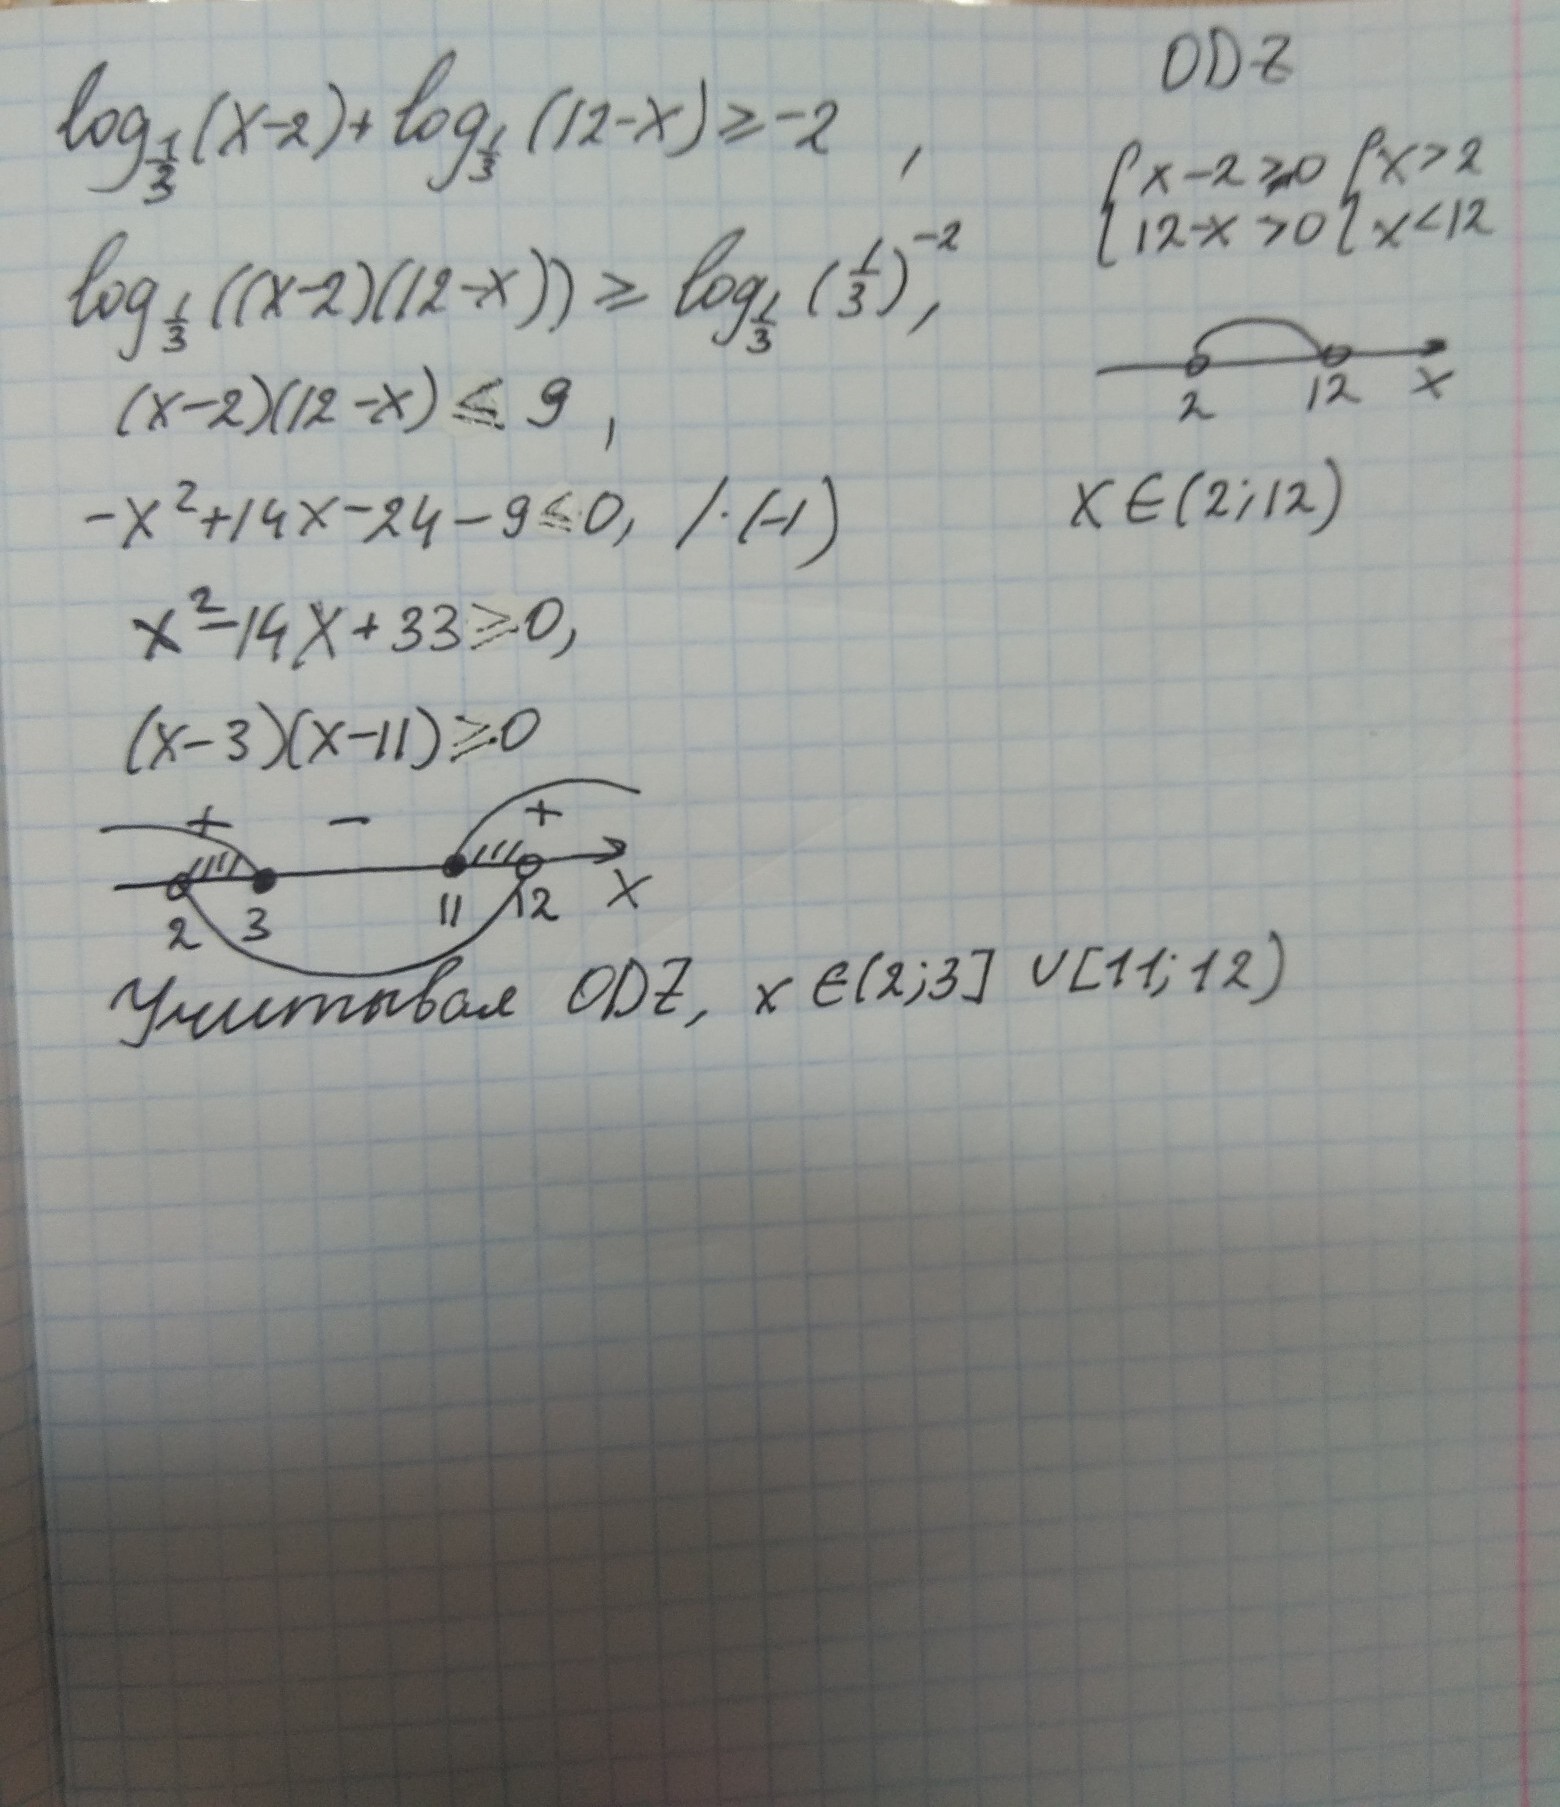 log_{1/3}(x-2)+log_{1/3}(12-x)≥-2,
log_{1/3}((x-2)(12-x))≥log_{1/3}(1/3)^{-2},
(x-2)(12-x)≤9,
-x²+14x-24-9≤0, /·(-1)
x²-14x+33≥0,
(x-3)(x-11)≥0
+ - +
2 3 11 12 x
Учитывая ODZ, x∈(2;3] ∪[11;12)
ODZ
{x-2>0 {x>2
{12-x>0 {x<12
2 12 x
x∈(2;12)